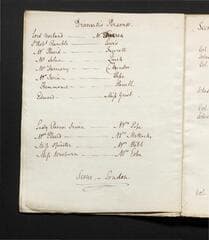 Dramatis Personæ.
Lord Norland Mr
Sr Robt Ramble Lewis
Mr Placid
Mr Solus Quick
Mr Harmony Munden
Mr Irwin Pope
Hammond Powell
Edward Miss Grist
Lady Eleanor Irwin Mrs Pope
Mrs Placid Mrs Mattocks
Miss Spinster Mrs Webb
Miss Wooburn Mrs Esten
Scene - London